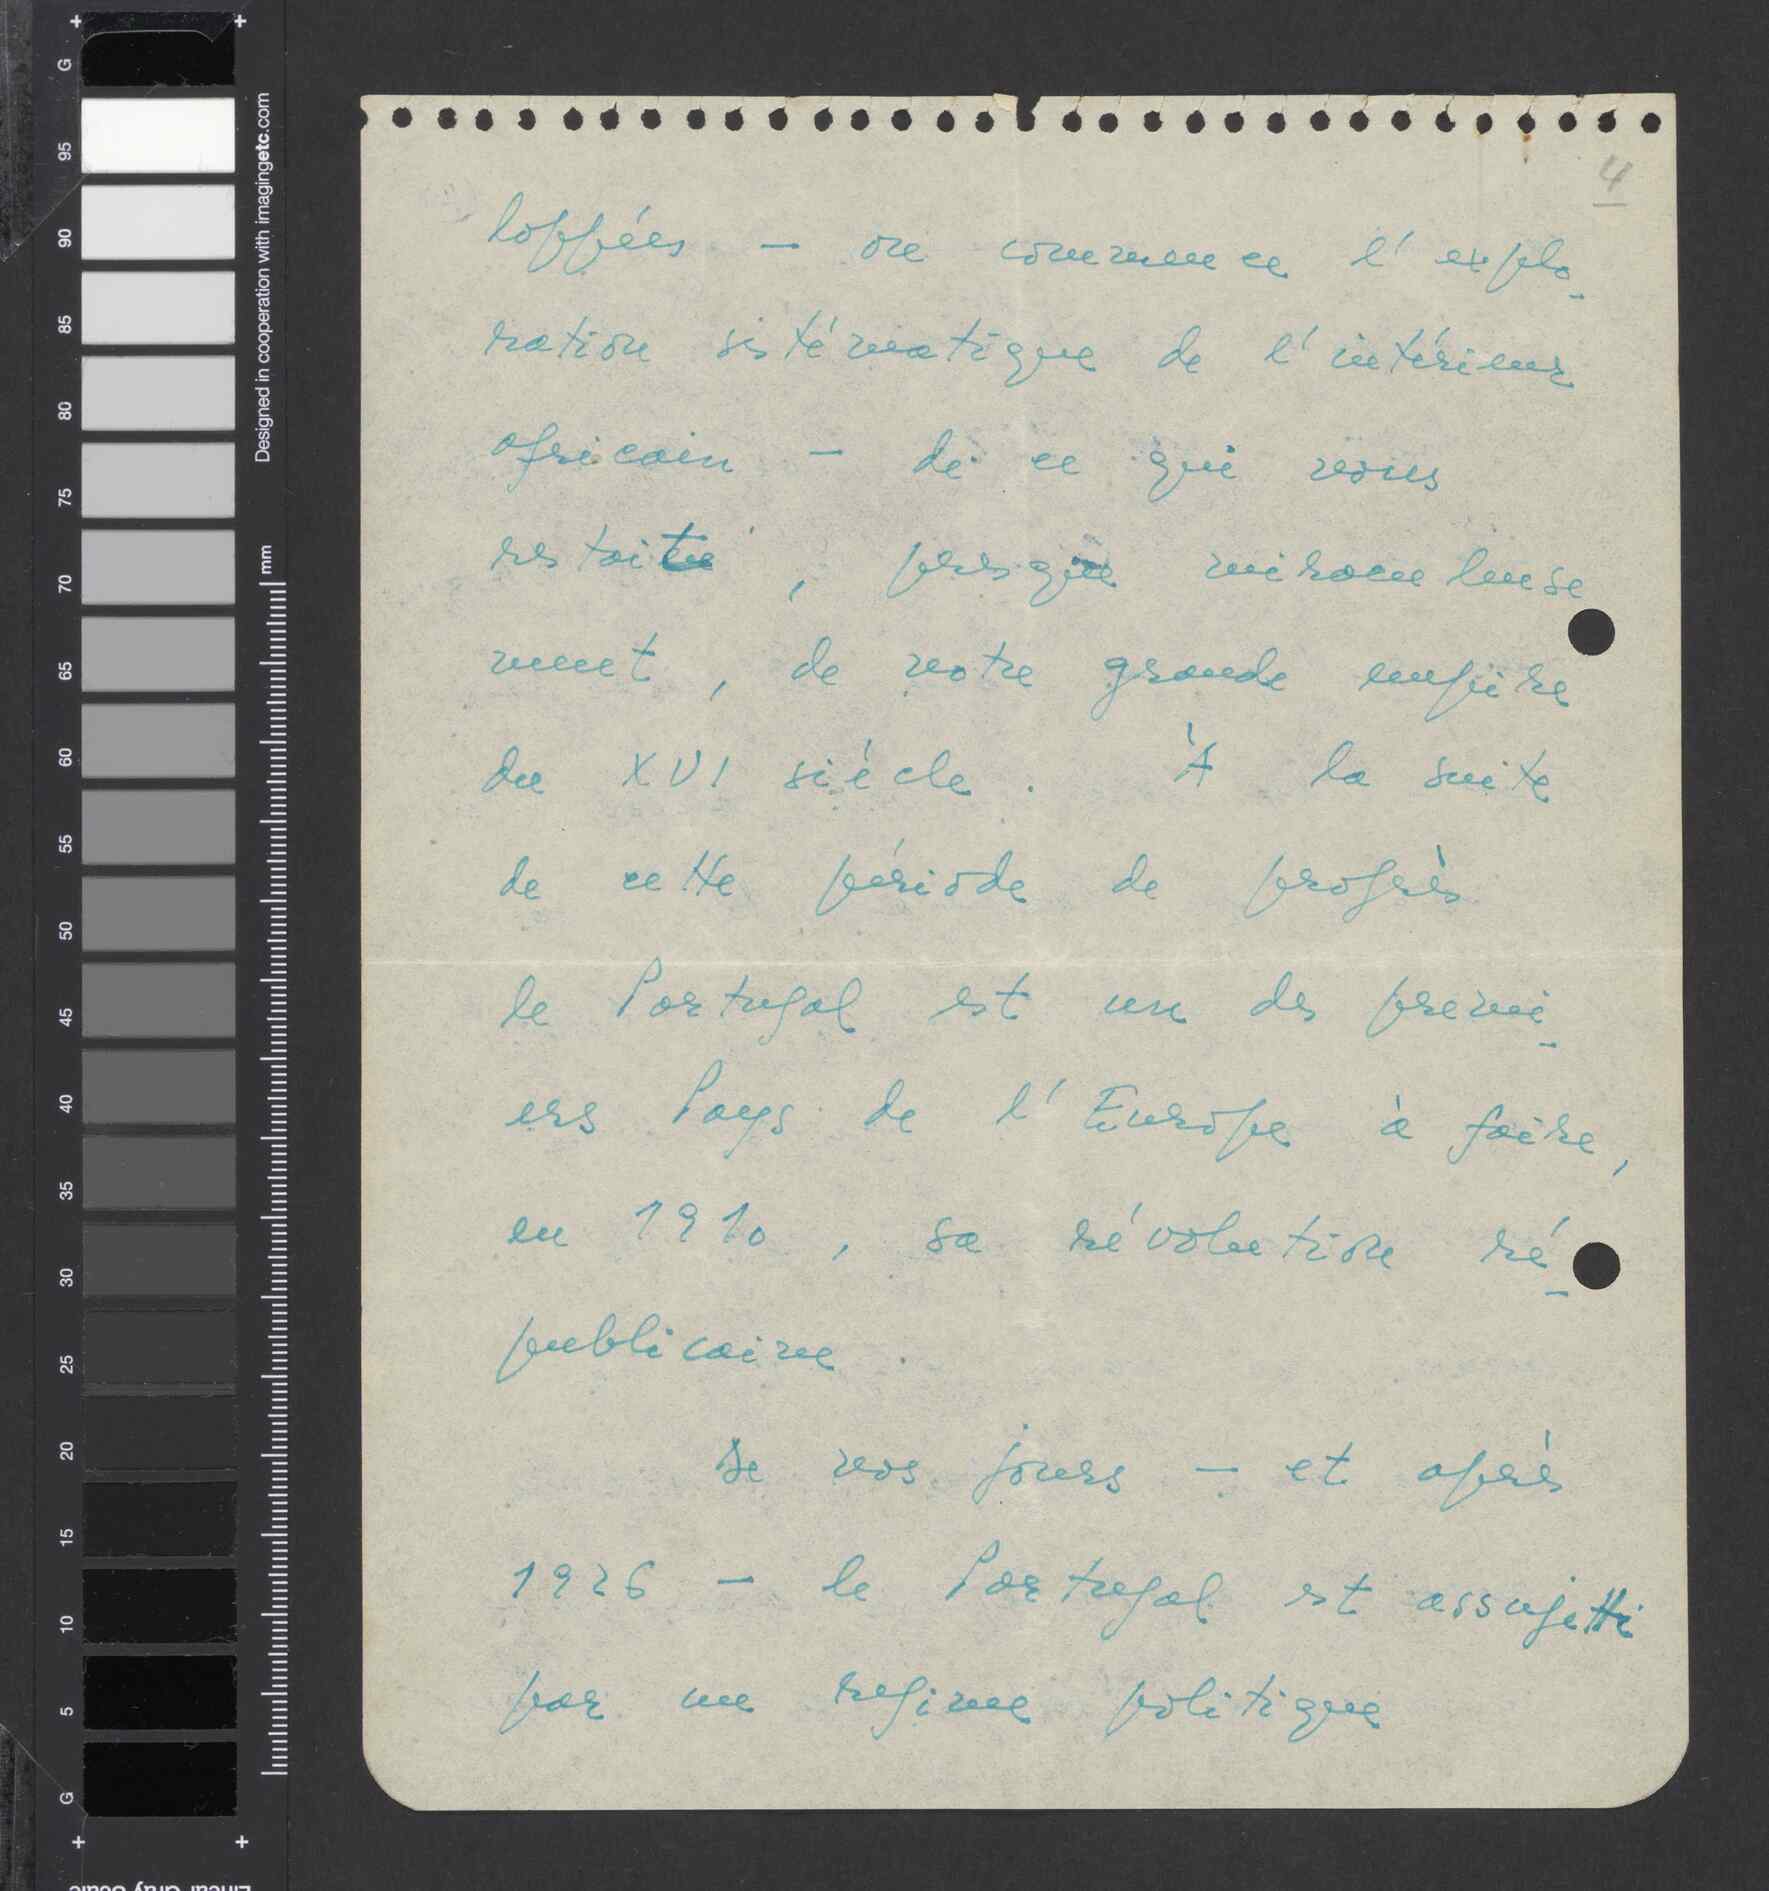 4
loppées – on commence l'explo-
ration sistématique de l'intérieur
africain – de ce qui nous
restait, presque miraculeuse
ment, de notre grande empire
du XVI siécle. À la suite
de cette période de progrès
le Portugal est un des premi-
ers Pays de l'Europe à faire,
en 1910, sa révolution ré-
publicaine.
De nos jours – et après
1926 – le Portugal est assujetti
par un regime politique
G
95
90
85
80
75
70
65
60
55
50
45
40
35
30
25
20
15
10
5
G
Designed in cooperation with imagingetc.com
mm